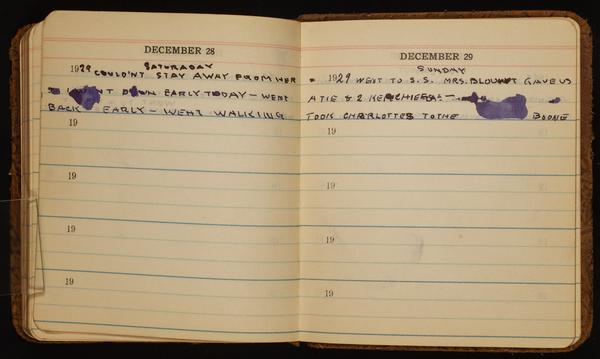 DECEMBER 28
SATURADAY
1929 COULDN'T STAY AWAY FROM HER
SO I WENT DOWN EARLY TODAY - WENT
BACK EARLY - WENT WALKING
19
19
19
19
DECEMBER 29
SUNDAY
1929 WENT TO S.S. MRS. BLOUNT GAVE US
A TIE & 2 KERCHIEFS -
TOOK CHARLOTTES TO THE BOONE
19
19
19
19